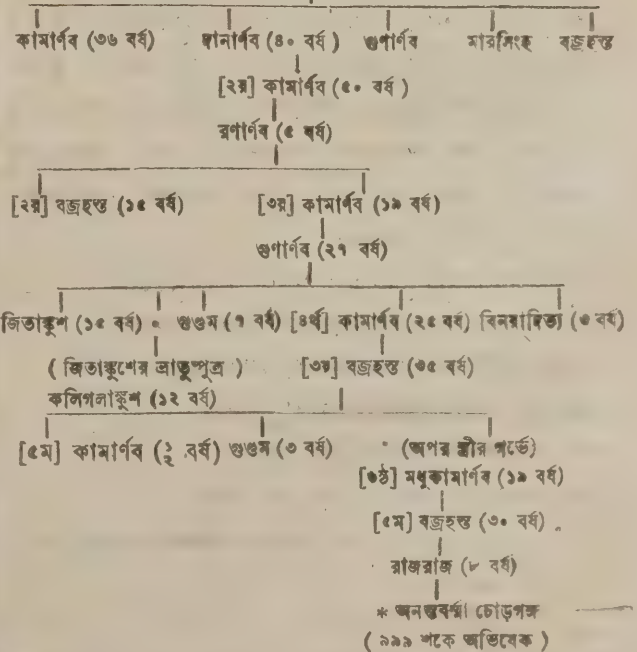 কামার্ণব (৩৬ বর্ষ) দানার্ণব (৪০ বর্ষ) গুণার্ণব মারসিংহ বজ্রহস্ত
[২য়] কামার্ণব (৫০ বর্ষ)
রণার্ণব (৫ বর্ষ)
[২য়] বজ্রহস্ত (১৫ বর্ষ) [৩য়] কামার্ণব (১৯ বর্ষ)
গুণার্ণব (২৭ বর্ষ)
জিতাঙ্কুশ (১৫ বর্ষ) গুণ্ডম (৭ বর্ষ) [৪র্থ] কামার্ণব (২৫ বর্ষ) বিনয়াদিত্য (৩ বর্ষ)
(জিতাঙ্কুশের ভ্রাতুষ্পুত্র) [৩য়] বজ্রহস্ত (৩৫ বর্ষ)
কলিগলাঙ্কুশ (১২ বর্ষ)
[৫ম] কামার্ণব (½ বর্ষ) গুণ্ডম (৩ বর্ষ) (অপর স্ত্রীর গর্ভে)
[৬ষ্ঠ] মধুকামার্ণব (১৯ বর্ষ)
[৫ম] বজ্রহস্ত (৩০ বর্ষ)
রাজরাজ (৮ বর্ষ)
* অনন্তবর্ম্মা চোড়গঙ্গ
(৯৯৯ শকে অভিষেক)